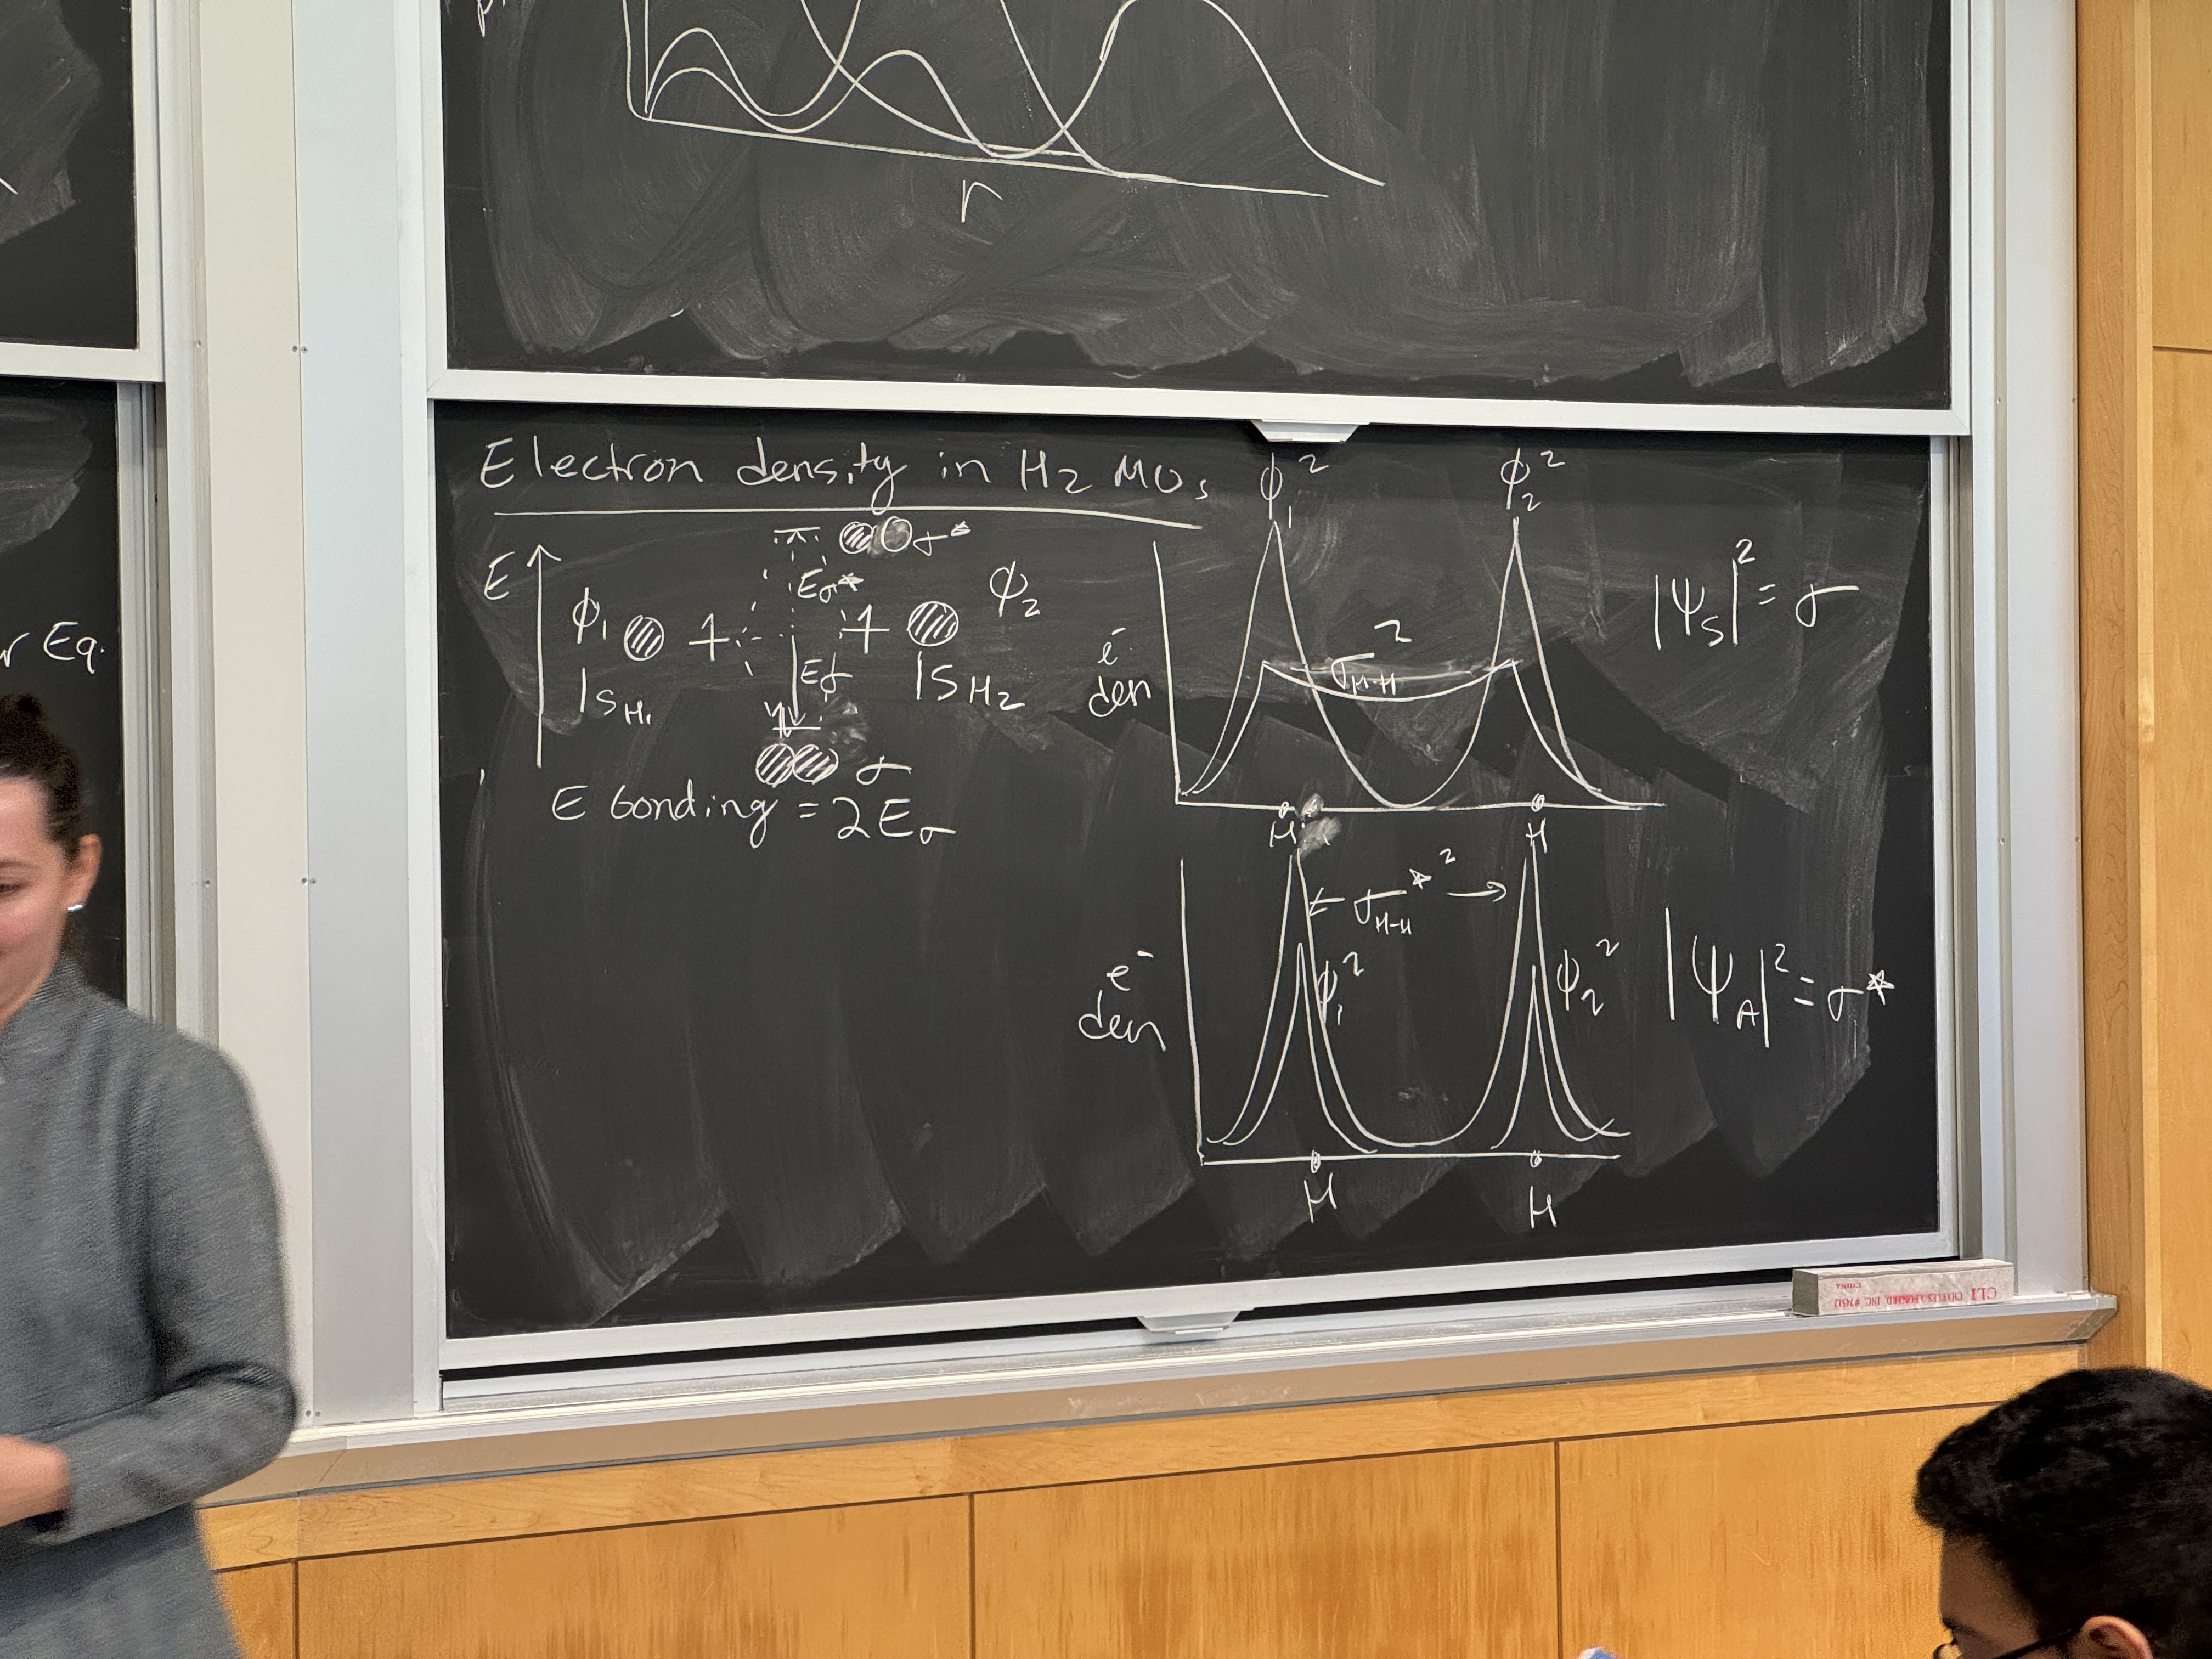 r
r Eq.
Electron density in H2 MOs
E
σ*
Eσ*
ϕ1 + + ϕ2
1sH1 Eσ 1sH2
σ
E bonding = 2Eσ
ϕ1² ϕ2²
e⁻ den
σ²H-H
|ψS|² = σ
H H
e⁻ den
← σ*²H-H →
ϕ1² ϕ2²
|ψA|² = σ*
H H
CLI CHARLES LEONARD, INC #74512
CHINA